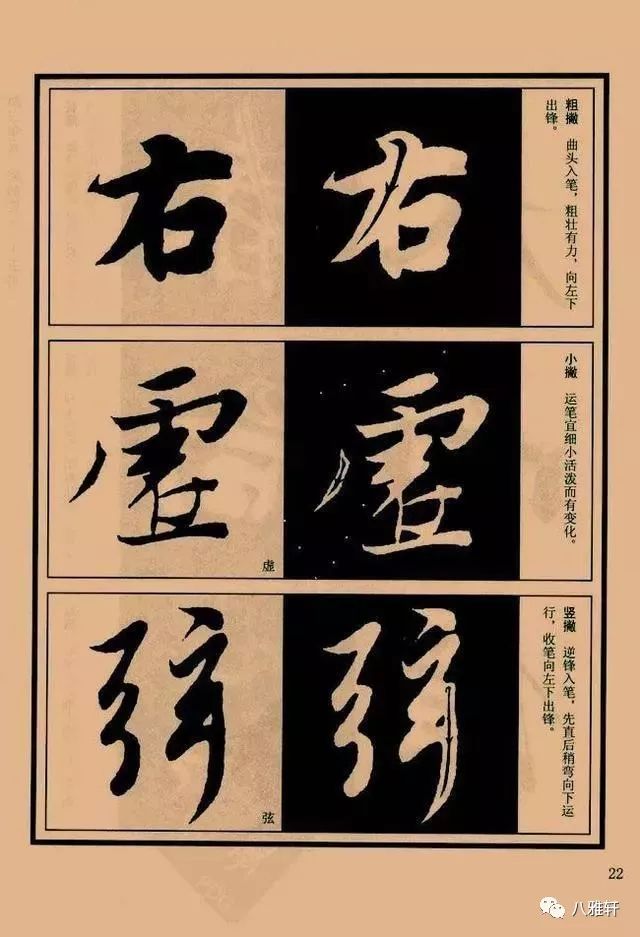 右
右
粗撇　曲头入笔，粗壮有力，向左下
出锋。
虚
虚
虚
小撇　运笔宜细小活泼而有变化。
弦
弦
弦
竖撇　逆锋入笔，先直后稍弯向下运
行，收笔向左下出锋。
22
八雅轩